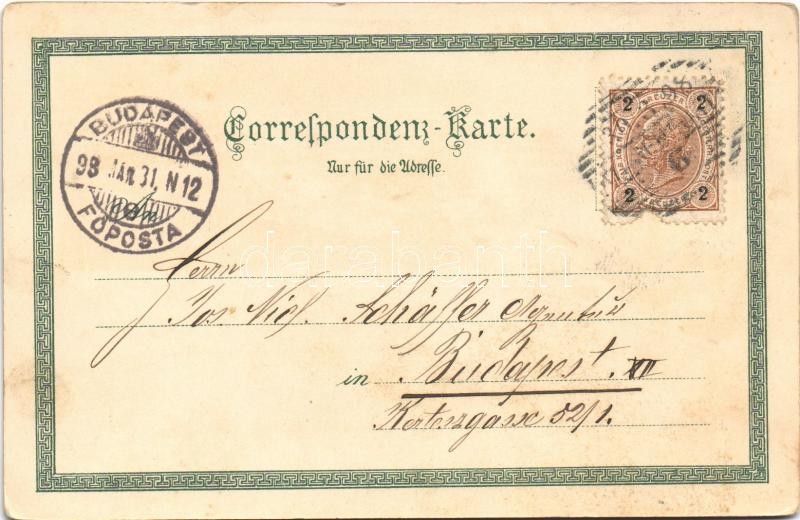 BUDAPEST
98 JAN. 31. N 12
FŐPOSTA
Correspondenz-Karte.
Nur für die Adresse.
2 KREUZER 2
2 2
An
Herrn
Jos. Nicl. Schäffer Agentur
in Budapest. VII
Kerteszgasse 52/1.
darabanth